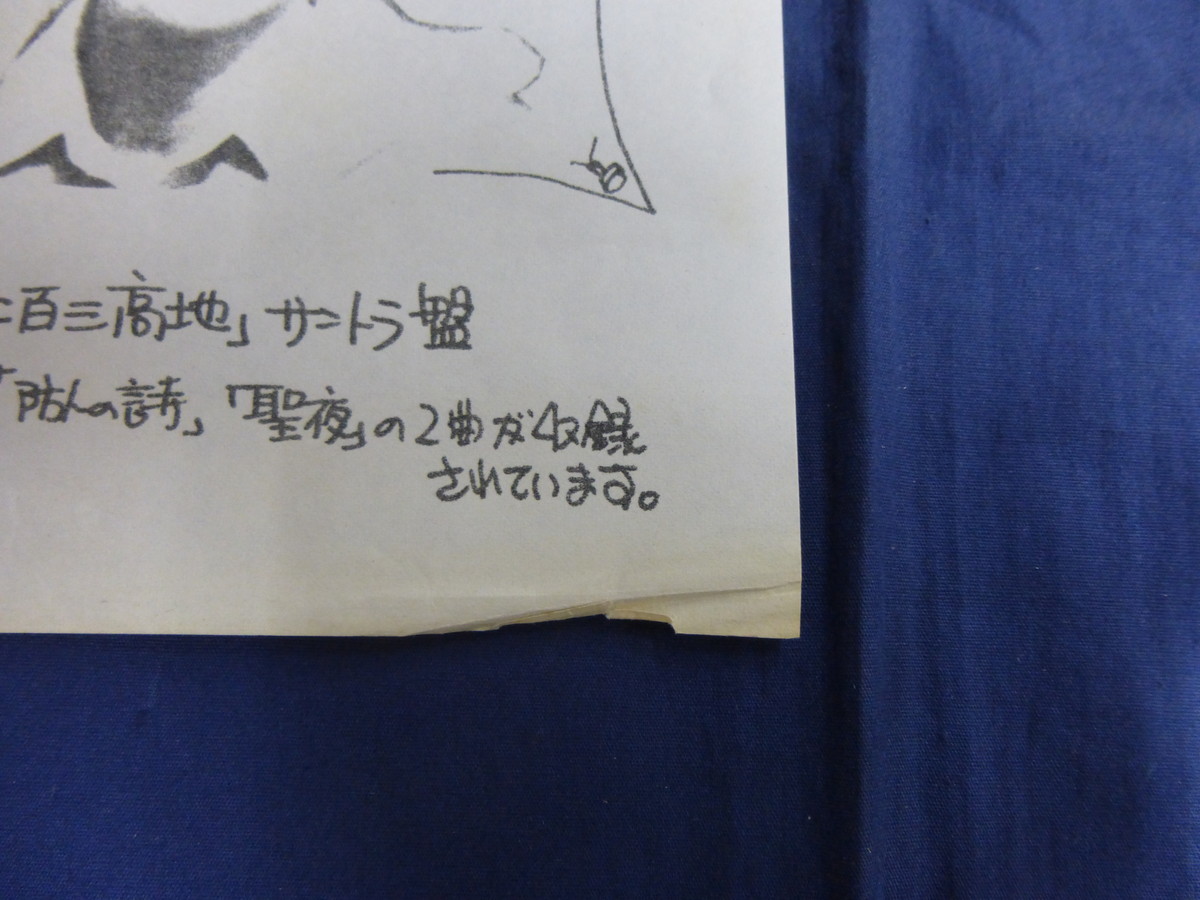 二百三高地」サントラ盤
「防人の詩」「聖夜」の2曲が収録
されています。